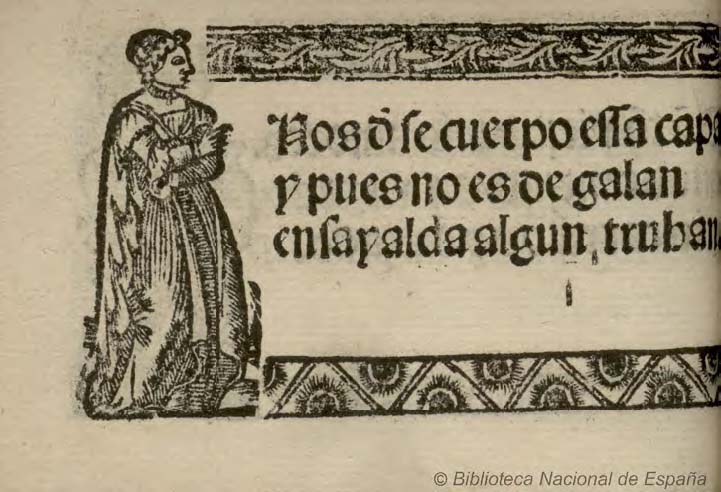 Nos d̄ se cuerpo essa capa
y pues no es de galan
ensayalda algun truban
© Biblioteca Nacional de España